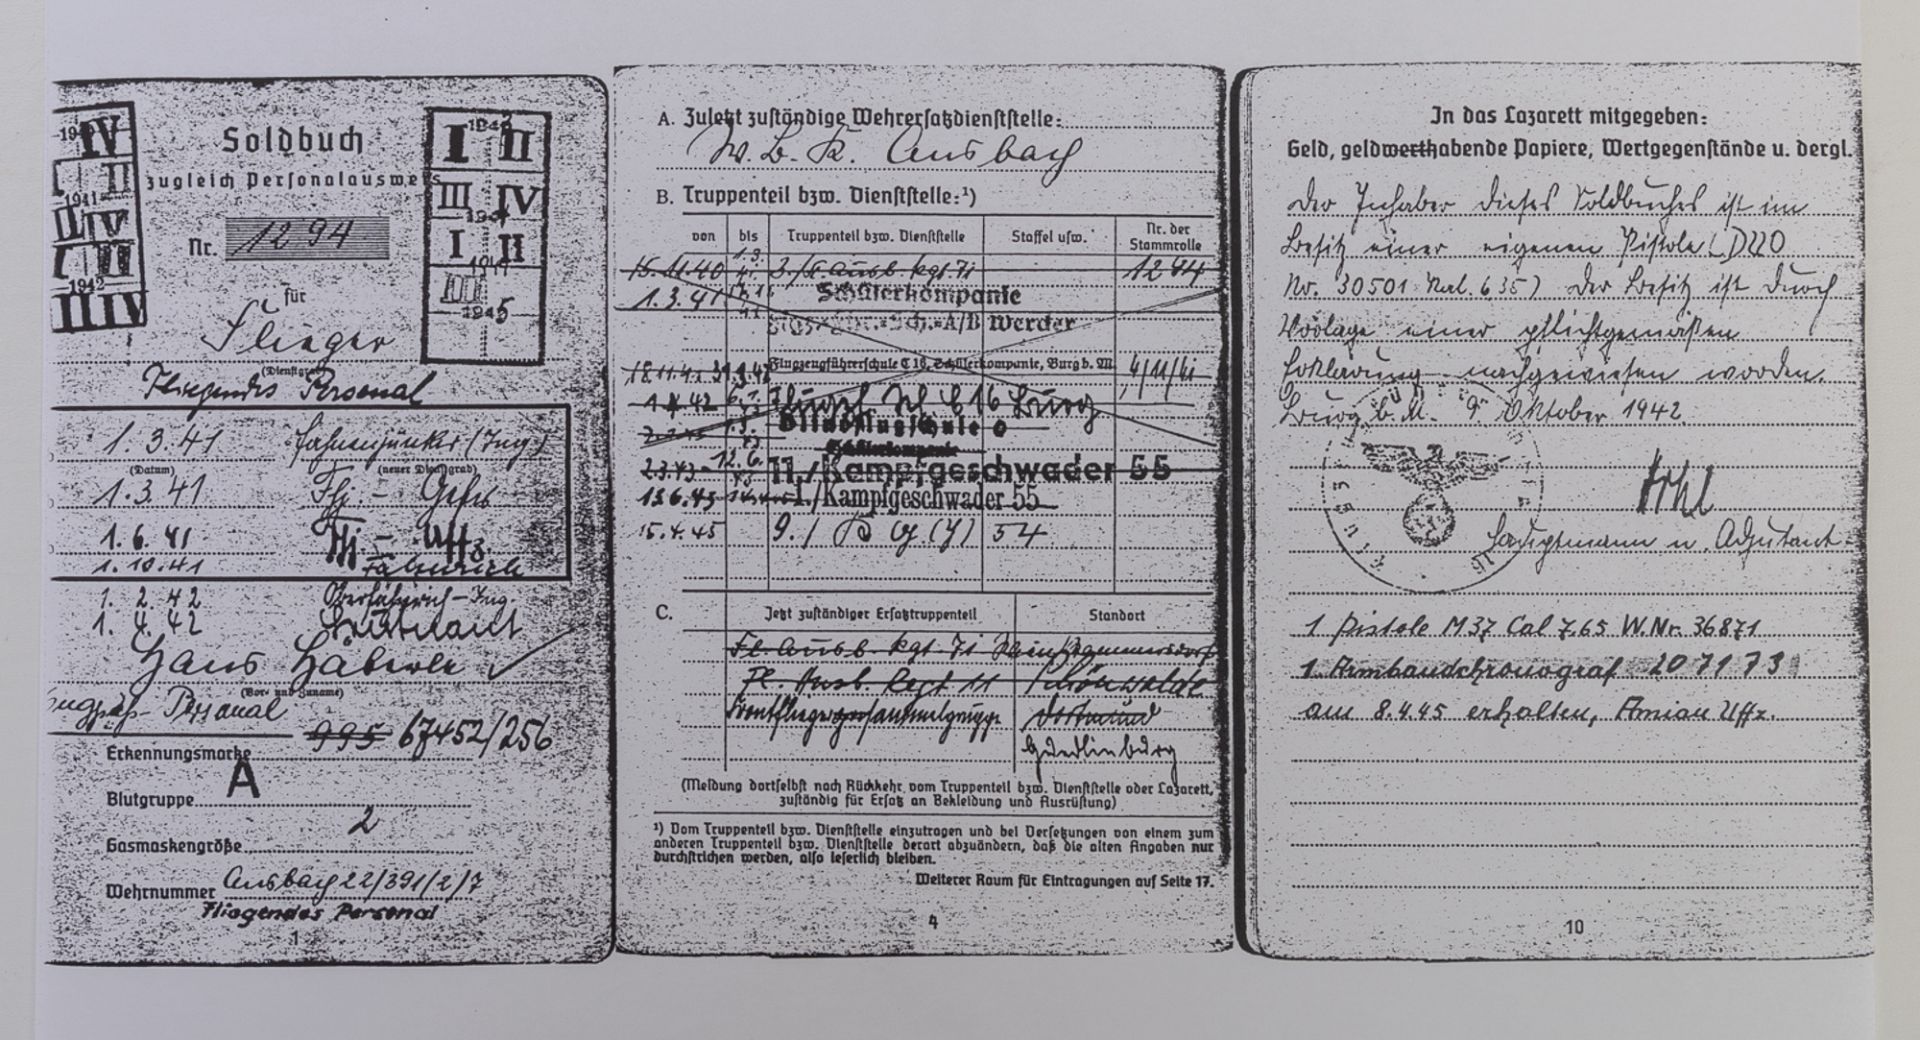 Soldbuch
zugleich Personalausweis
Nr. 1294
für
Flieger
(Dienstgrad)
Fliegendes Personal
1.3.41 Fahnenjunker (Ing)
(Datum) (neuer Dienstgrad)
1.3.41 Fhj. - Gefr
1.6.41 Fhj. - Uffz.
1.10.41 Fähnrich
1. 2. 42 Oberfähnrich - Ing.
1. 4. 42 Leutnant
Hans Häberle
(Vor- und Zuname)
Personal
995 67452/256
Erkennungsmarke
Blutgruppe A
Gasmaskengröße 2
Wehrnummer Ansbach 22/391/2/7
Fliegendes Personal
1
1940 IV
I II
1941
III IV
I II
1942
III IV
1943
I II
III IV
1944
I II
III
1945
A. Zuletzt zuständige Wehrersatzdienststelle:
W. B. K. Ansbach
B. Truppenteil bzw. Dienststelle:¹)
von bis Truppenteil bzw. Dienststelle Staffel usw. Nr. der Stammrolle
15.11.40 1.3.41 3./Fl. Ausb. Rgt. 71 1294
1.3.41 Schülerkompanie
A/B Werder
18.11.41 Flugzeugführerschule C 16, Schülerkompanie, Burg b. M. 4/11/41
1.4.42 C 16 Burg
Blindflugschule
Schülerkompanie
2.3.43 - 12.6.43 11./Kampfgeschwader 55
13.6.43 1./Kampfgeschwader 55
15.4.45 9./ K G (J) 54
C. Jetzt zuständiger Ersatztruppenteil Standort
Fl. Ausb. Rgt 71
Fl. Ausb. Regt 11 Schönwalde
Frontfliegersammelgruppe Dortmund
Quedlinburg
(Meldung dortselbst nach Rückkehr vom Truppenteil bzw. Dienststelle oder Lazarett,
zuständig für Ersatz an Bekleidung und Ausrüstung)
¹) Vom Truppenteil bzw. Dienststelle einzutragen und bei Versetzungen von einem zum
anderen Truppenteil bzw. Dienststelle derart abzuändern, daß die alten Angaben nur
durchstrichen werden, also leserlich bleiben.
Weiterer Raum für Eintragungen auf Seite 17.
4
In das Lazarett mitgegeben:
Geld, geldwerthabende Papiere, Wertgegenstände u. dergl.
Der Inhaber dieses Soldbuches ist im
Besitz einer eigenen Pistole (DUO
Nr. 30501 Kal. 6 35) Der Besitz ist durch
Vorlage einer pflichtgemäßen
Erklärung nachgewiesen worden.
Burg b. M. 9. Oktober 1942
Hauptmann u. Adjutant.
1 Pistole M37 Cal 7.65 W.Nr. 36871
1 Armbandchronograf 207173
am 8.4.45 erhalten, Uffz.
10